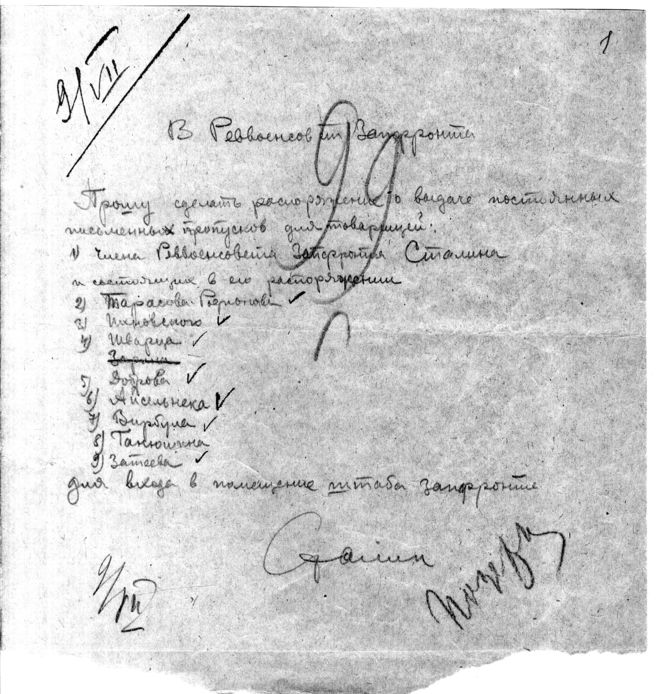 9/VII
1
В Реввоенсовет Запфронта
99
Прошу сделать распоряжение о выдаче постоянных
письменных пропусков для товарищей:
1) члена Реввоенсовета Запфронта Сталина
и состоящих в его распоряжении
2) Тарасова-Родионова
3) Пиховского
4) Шварца
Зарина
5) Доброва
6) Айсельнека
7) Вирбула
8) Танюшина
9) Затеева
для входа в помещение штаба Запфронта
Сталин
9/VII